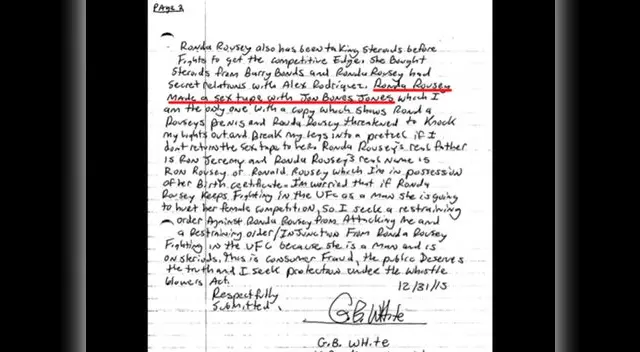 PAGE 2
Ronda Rousey also has been taking steroids before
Fights to get the competitive Edge. She Bought
Steroids from Barry Bonds and Ronda Rousey had
Secret relations with Alex Rodriquez. Ronda Rousey
Made a sex tape with Jon Bones Jones which I
am the only one with a copy which shows Ronda
Rouseys penis and Ronda Rousey threatened to Knock
my lights out and Break my legs into a pretzel if I
dont return the sex tape to her. Ronda Rousey's real Father
is Ron Jeremy and Ronda Rousey's real Name is
Ron Rousey or Ronald Rousey which I'm in possession
of her Birth certificate. I'm worried that if Ronda
Rousey Keeps Fighting in the UFC as a man she is going
to hurt her female competition, so I seek a restraining
order Against Ronda Rousey from Attacking me and
a Restraining order/Injunction From Ronda Rousey
Fighting in the UFC because she is a man and is
on steriods. This is consumer Fraud, the public Deserves
the truth and I seek protection under the whistle
blowers Act.
12/31/15
Respectfully
Submitted.
G.B. White
G.B. White